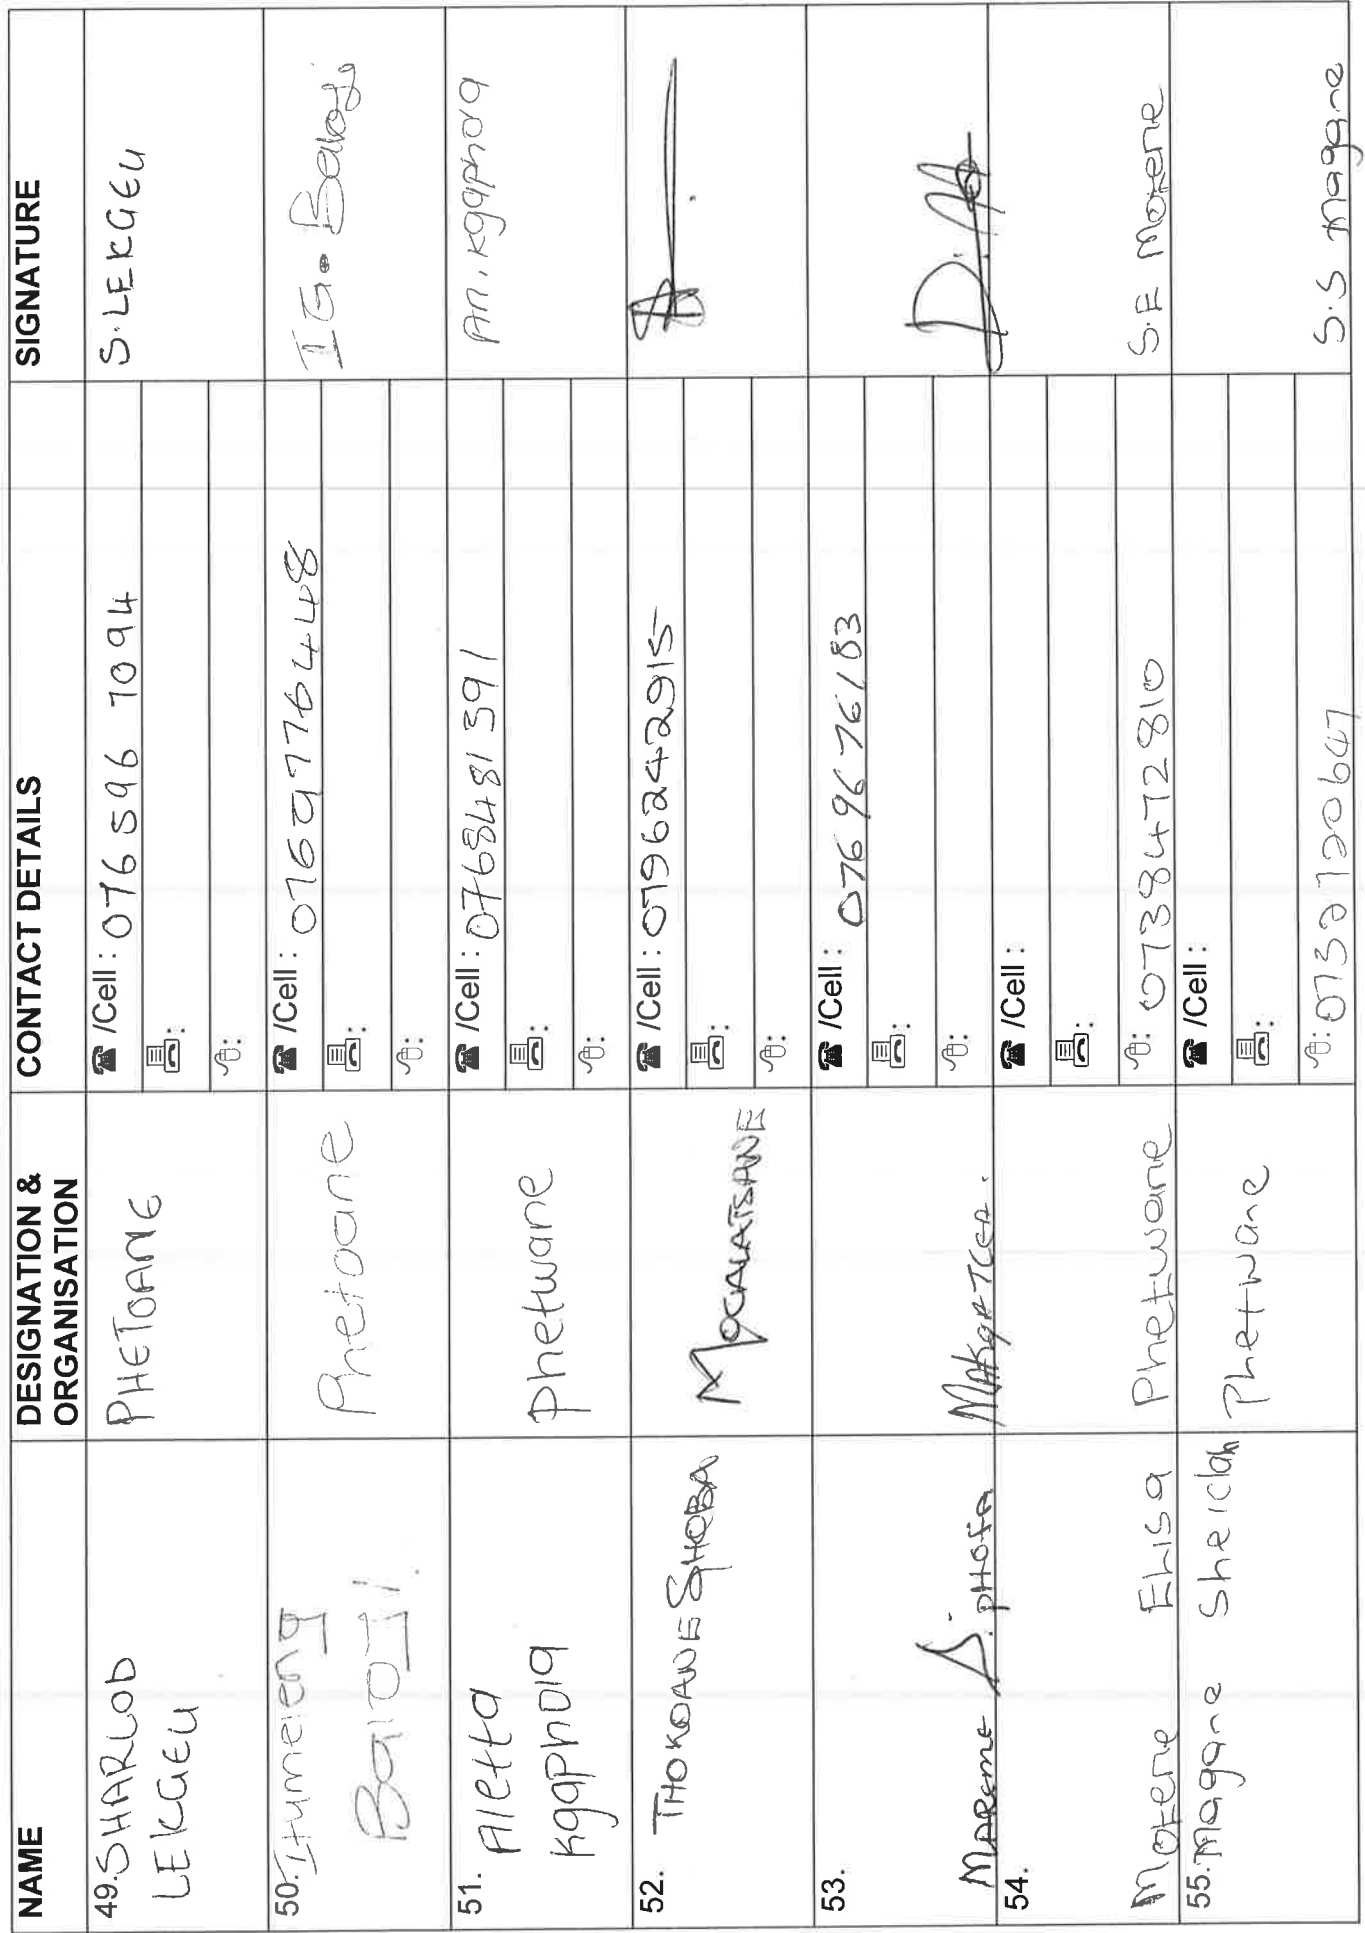 NAME
DESIGNATION & ORGANISATION
CONTACT DETAILS
SIGNATURE
49. SHARLOD
LEKGEU
PHETOANE
/Cell : 076 596 7094
:
:
S. LEKGEU
50. Itumeleng
Baloyi
Phetoane
/Cell : 0769776448
:
:
I G. Baloyi
51. Aletta
Kgaphola
Phetwane
/Cell : 0768481391
:
:
An. Kgaphola
52.
THOKOANE SHOBA
MOGALATSANE
/Cell : 0796242915
:
:
53.
/Cell : 0769676183
:
:
54.
Mofene Elisa
Phetwane
/Cell :
:
: 0738472810
S.E Mofene
55. Magane Sheidah
Phetwane
/Cell :
:
: 0732720647
S.S Magane